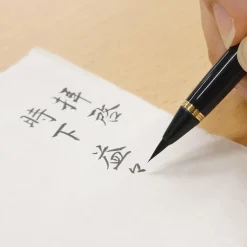 拝啓
時下益